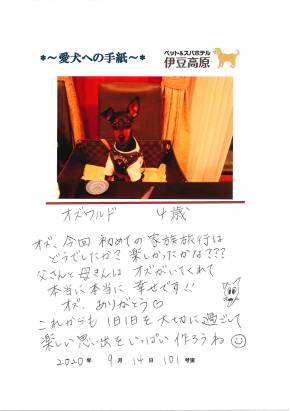 ＊～愛犬への手紙～＊
ペット&スパホテル
伊豆高原
オズワルド　4歳
オズ、今回 初めての 家族旅行は
どうでしたか？ 楽しかったかな？？？
父さんと 母さんは オズがいてくれて
本当に 本当に 幸せです!!
オズ、ありがとう♡
これからも 1日1日を 大切に 過ごして
楽しい 思い出を いっぱい 作ろうね
2020年 9月 14日 101号室